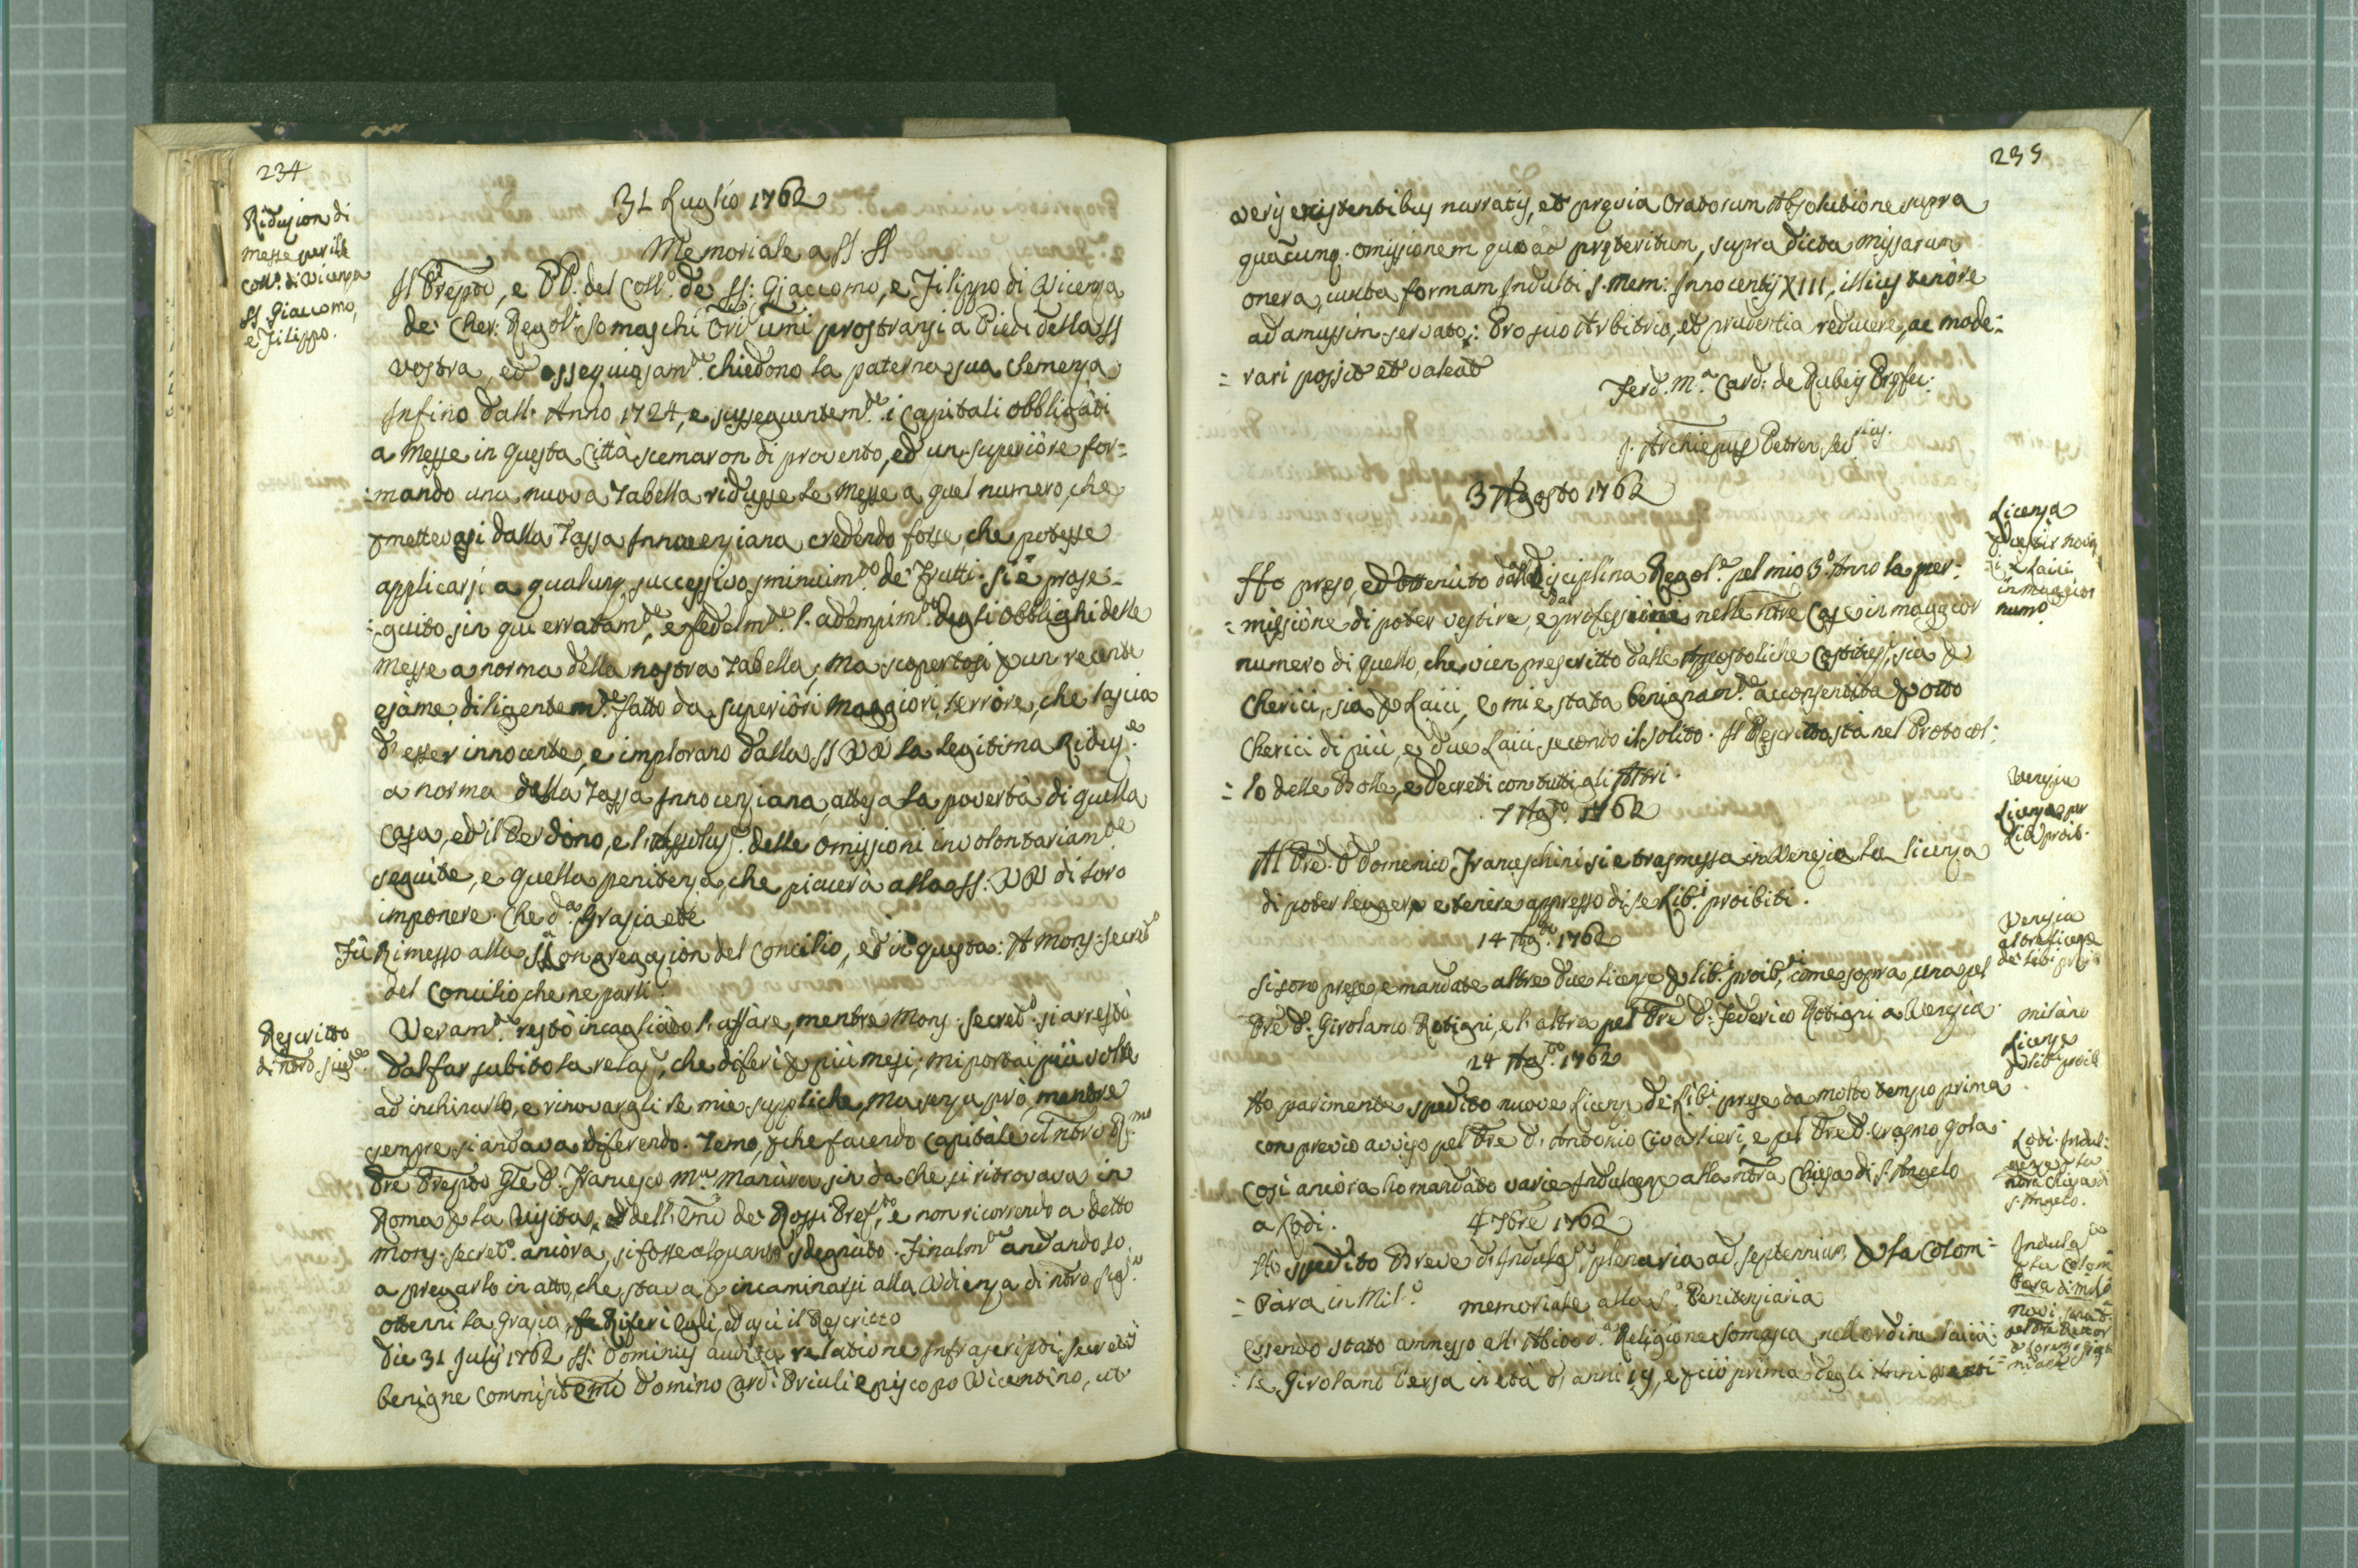 234
Riduzion di
messe per il
Coll.o di Vicenza
SS. Giacomo,
e Filippo.
31 Luglio 1762
Memoriale a SS. SS
Il Prepto, e PP. del Coll.o de SS: Giaccomo, e Filippo di Vicenza
de' Cher: Regol.i Somaschi Ori umi prostransi a Piedi della SS
vostra, ed ossequiosam.te chiedono la paterna sua Clemenza
Infino dall' Anno 1724, e sussequentem.te i Capitali obbligati
a Messe in questa Città scemaron di provento, ed un superiore for=
=mando una nuova Tabella ridusse le Messe a quel numero, che
pmettevasi dalla Tassa Innocenziana credendo forse, che potesse
applicarsi a qualunq. successivo sminuim.to de' Frutti. Si è prose=
=guito sin qui erratam.te, e fedelm.te l'adempim.to degli obblighi delle
Messe a norma della nostra Tabella; Ma scopertosi p un recente
esame diligentem.te fatto da superiori Maggiori, l'errore, che lascia
d' esser innocente, e implorano dalla SS VV la legitima Riduz.e
a norma della Tassa Innocenziana, attesa la povertà di quella
Casa, ed il Perdono, e l'Assoluz. delle omissioni involontariam.te
seguite, e quella penitenza, che piacerà alla SS. VV di loro
imponere. Che d.a Grazia ete
Fù Rimesso alla S Congregazion del Concilio, ed in questa: A Mons: Secret.o
del Concilio, che ne parli.
Rescritto
di nro sig.re
Veram.te restò incagliato l'affare, mentre Mons. Secret.o si arrestò
dal far subito la relaz., che diferì p più mesi; mi portai più volte
ad inchinarlo, e rinovargli le mie suppliche, Ma senza prò, mentre
sempre si andava diferendo. Temo, pche facendo capitale il nostro R.mo
Pre Prepto Gle D. Francesco M.a Manàra sin da che si ritrovava in
Roma p la Visita, dell' Emo de' Rossi Pref.to, e non ricorrendo a detto
Mons. Secret.o ancòra, si fosse alquanto sdegnàto. Finalm.te andando io
a pregarlo in atto, che stava p incaminarsi alla Udienza di nro sig.re
ottenni la Grazia, Riferì Egli, ed uscì il Rescritto
Die 31 Julij 1762 SS: Dominus audita relatione Infrascripti Secretij
benigne commisit Emo Domino Card: Priuli episcopo Vicentino, ut
235
veris existentibus narratis, et prævia oratorum Absolutione supra
quacumq. omissionem quoad præteritum, supra dicta Missarum
onera, iuxta formam Indulti S. Mem: Innocentij XIII, illius tenòre
ad amussim servato: Pro suo Arbitrio, et prudentia reducere, ac mode=
=rari possit et valeat
Ferd. M.a Card: de Rubeis Præfec:
J. Archiepus Petren. Sec.rius.
3 Agosto 1762
Licenza
p vestir novi
Laici
in maggior
num.o
Ho preso, ed ottenùto dalla Disciplina Regol.e pel mio 3.o Anno la per=
=missione di poter vestire, e professare nelle nre Case in maggior
numero di quello, che vien prescritto dalle Appostoliche Costituz., sia p
Cherici, sia p Laici, e mi è stata benignam.te acconsentita p otto
Cherici di più, e due Laici secondo il solito. Il Rescritto sta nel Protocol=
=lo delle Bolle, e Decreti con tutti gli Altri.
7 Ag.to 1762
Venezia
Licenza per
Lib. proib.
Al Pre. D Domenico Franceschini si è trasmessa in Venezia la licenza
di poter leggere e tenère appresso di se Lib.i proibiti.
14 Ag.to 1762
Venezia
altre licenze
de' Lib.i proib
Si sono prese, e mandate altre due licenze p lib.i proib.ti, come sopra, una pel
Pre D. Girolamo Rotigni, e l'altra pel Pre D. Federico Rotigni a Venezia.
24 Ag.to 1762
milàno
Licenze
p libri proib
Ho parimente spedito nuove Licenze de' Lib.i prese da molto tempo prima
con previo avviso pel Pre D. Antonio Civalieri, e pel Pre D. Erasmo Gola.
Lodi. Indul=
genze p la
nra Chiesa di
S. Angelo.
Così ancòra ho mandàto varie Indulgenze alla nra Chiesa di S. Angelo
a Lodi.
4 7bre 1762
Indulg
p la Colom
bara di mil.o
Ho spedito Breve d'Indulg. plenaria ad septennium p la Colom=
=bàra in Mil.o
memoriale alla S. Penitenziaria
Essendo stato ammesso all' Abito d.a Religione Somasca nell ordine laica=
=le Girolamo Tersa in età d' anni 19, e pciò prima degli Anni venti=